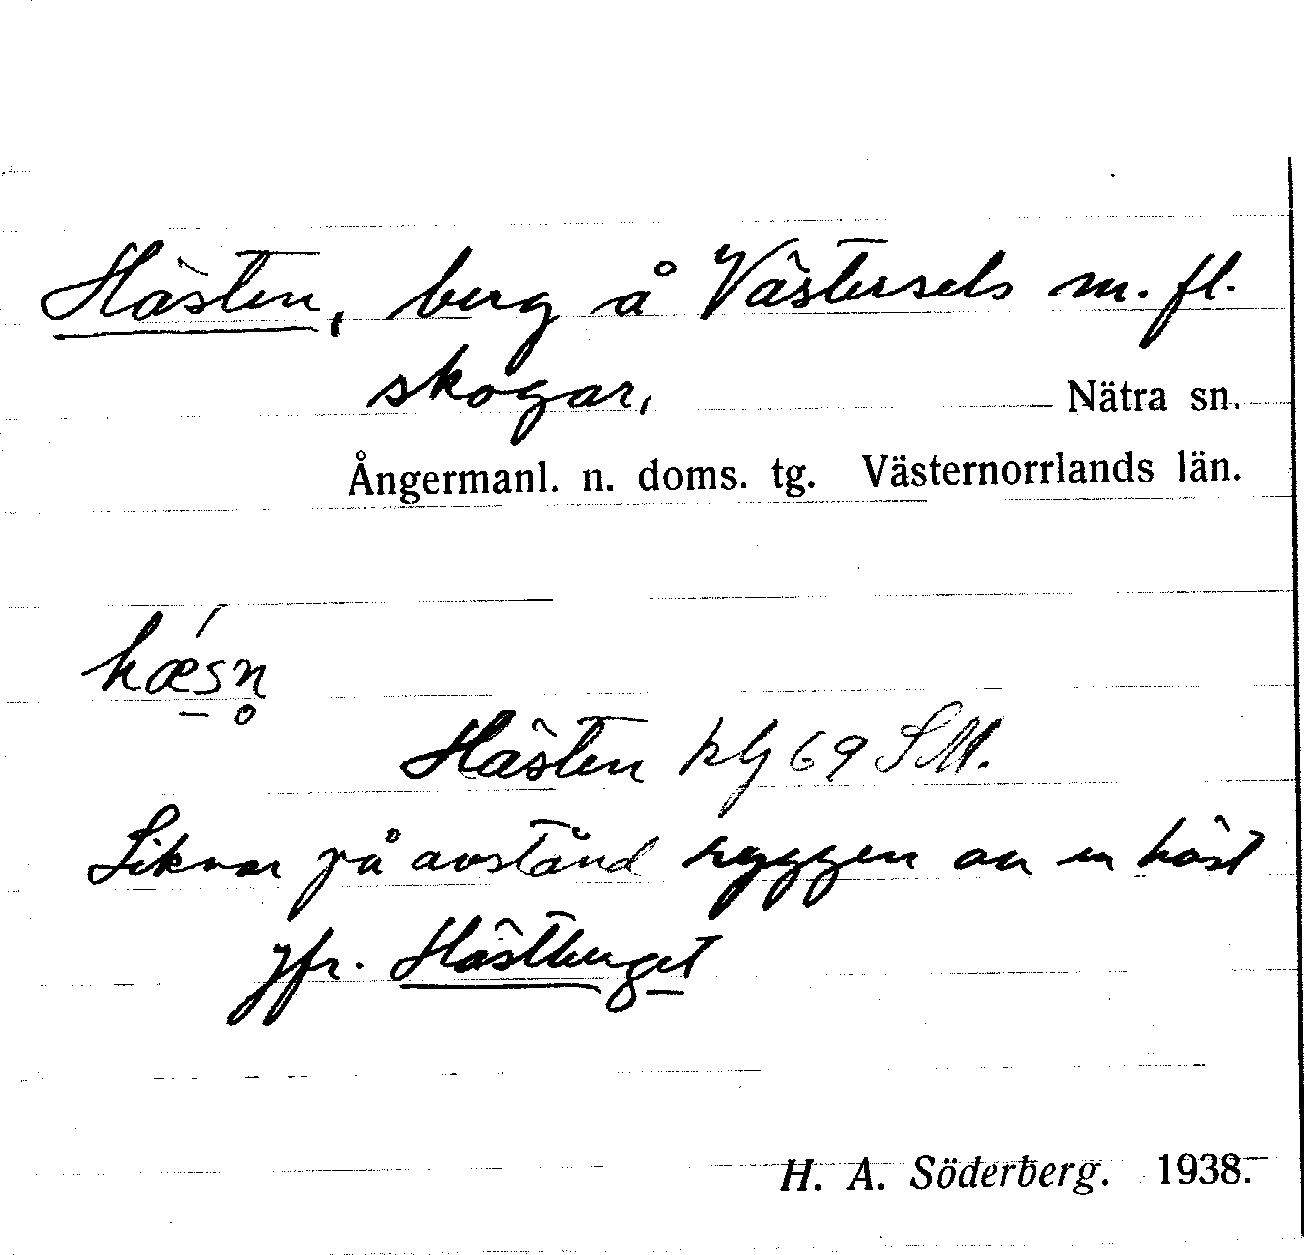 Hästen, berg å Västersels m. fl.
skogar, Nätra sn.
Ångermanl. n. doms. tg. Västernorrlands län.
hǽsn̥
Hästen 69 SM.
Liknar på avstånd ryggen av en häst
jfr. Hästberget
H. A. Söderberg. 1938.